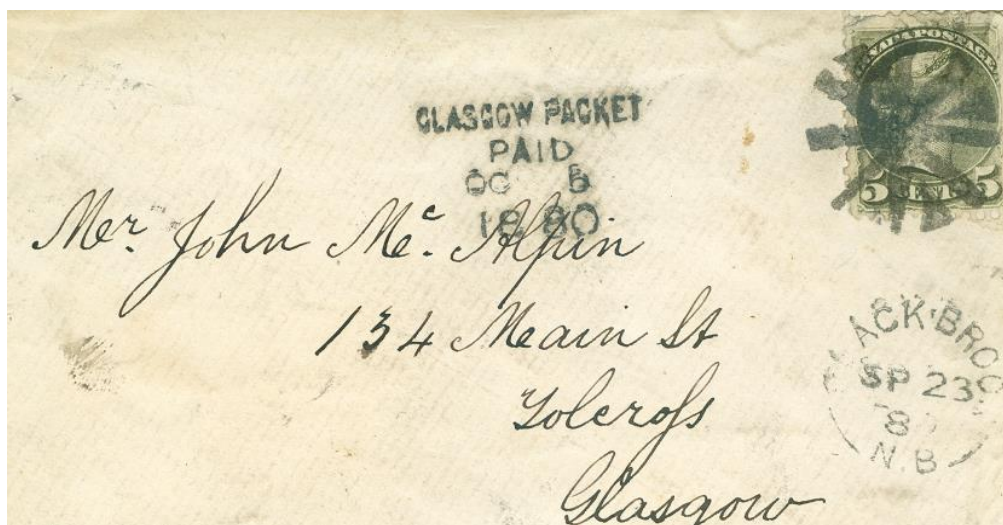 CANADA POSTAGE
5 CENTS 5
GLASGOW PACKET
PAID
OC 5
1880
Mr. John Mc. Alpin
134 Main St
Tolcross
Glasgow
ACK·BROO
SP 23
8
N.B